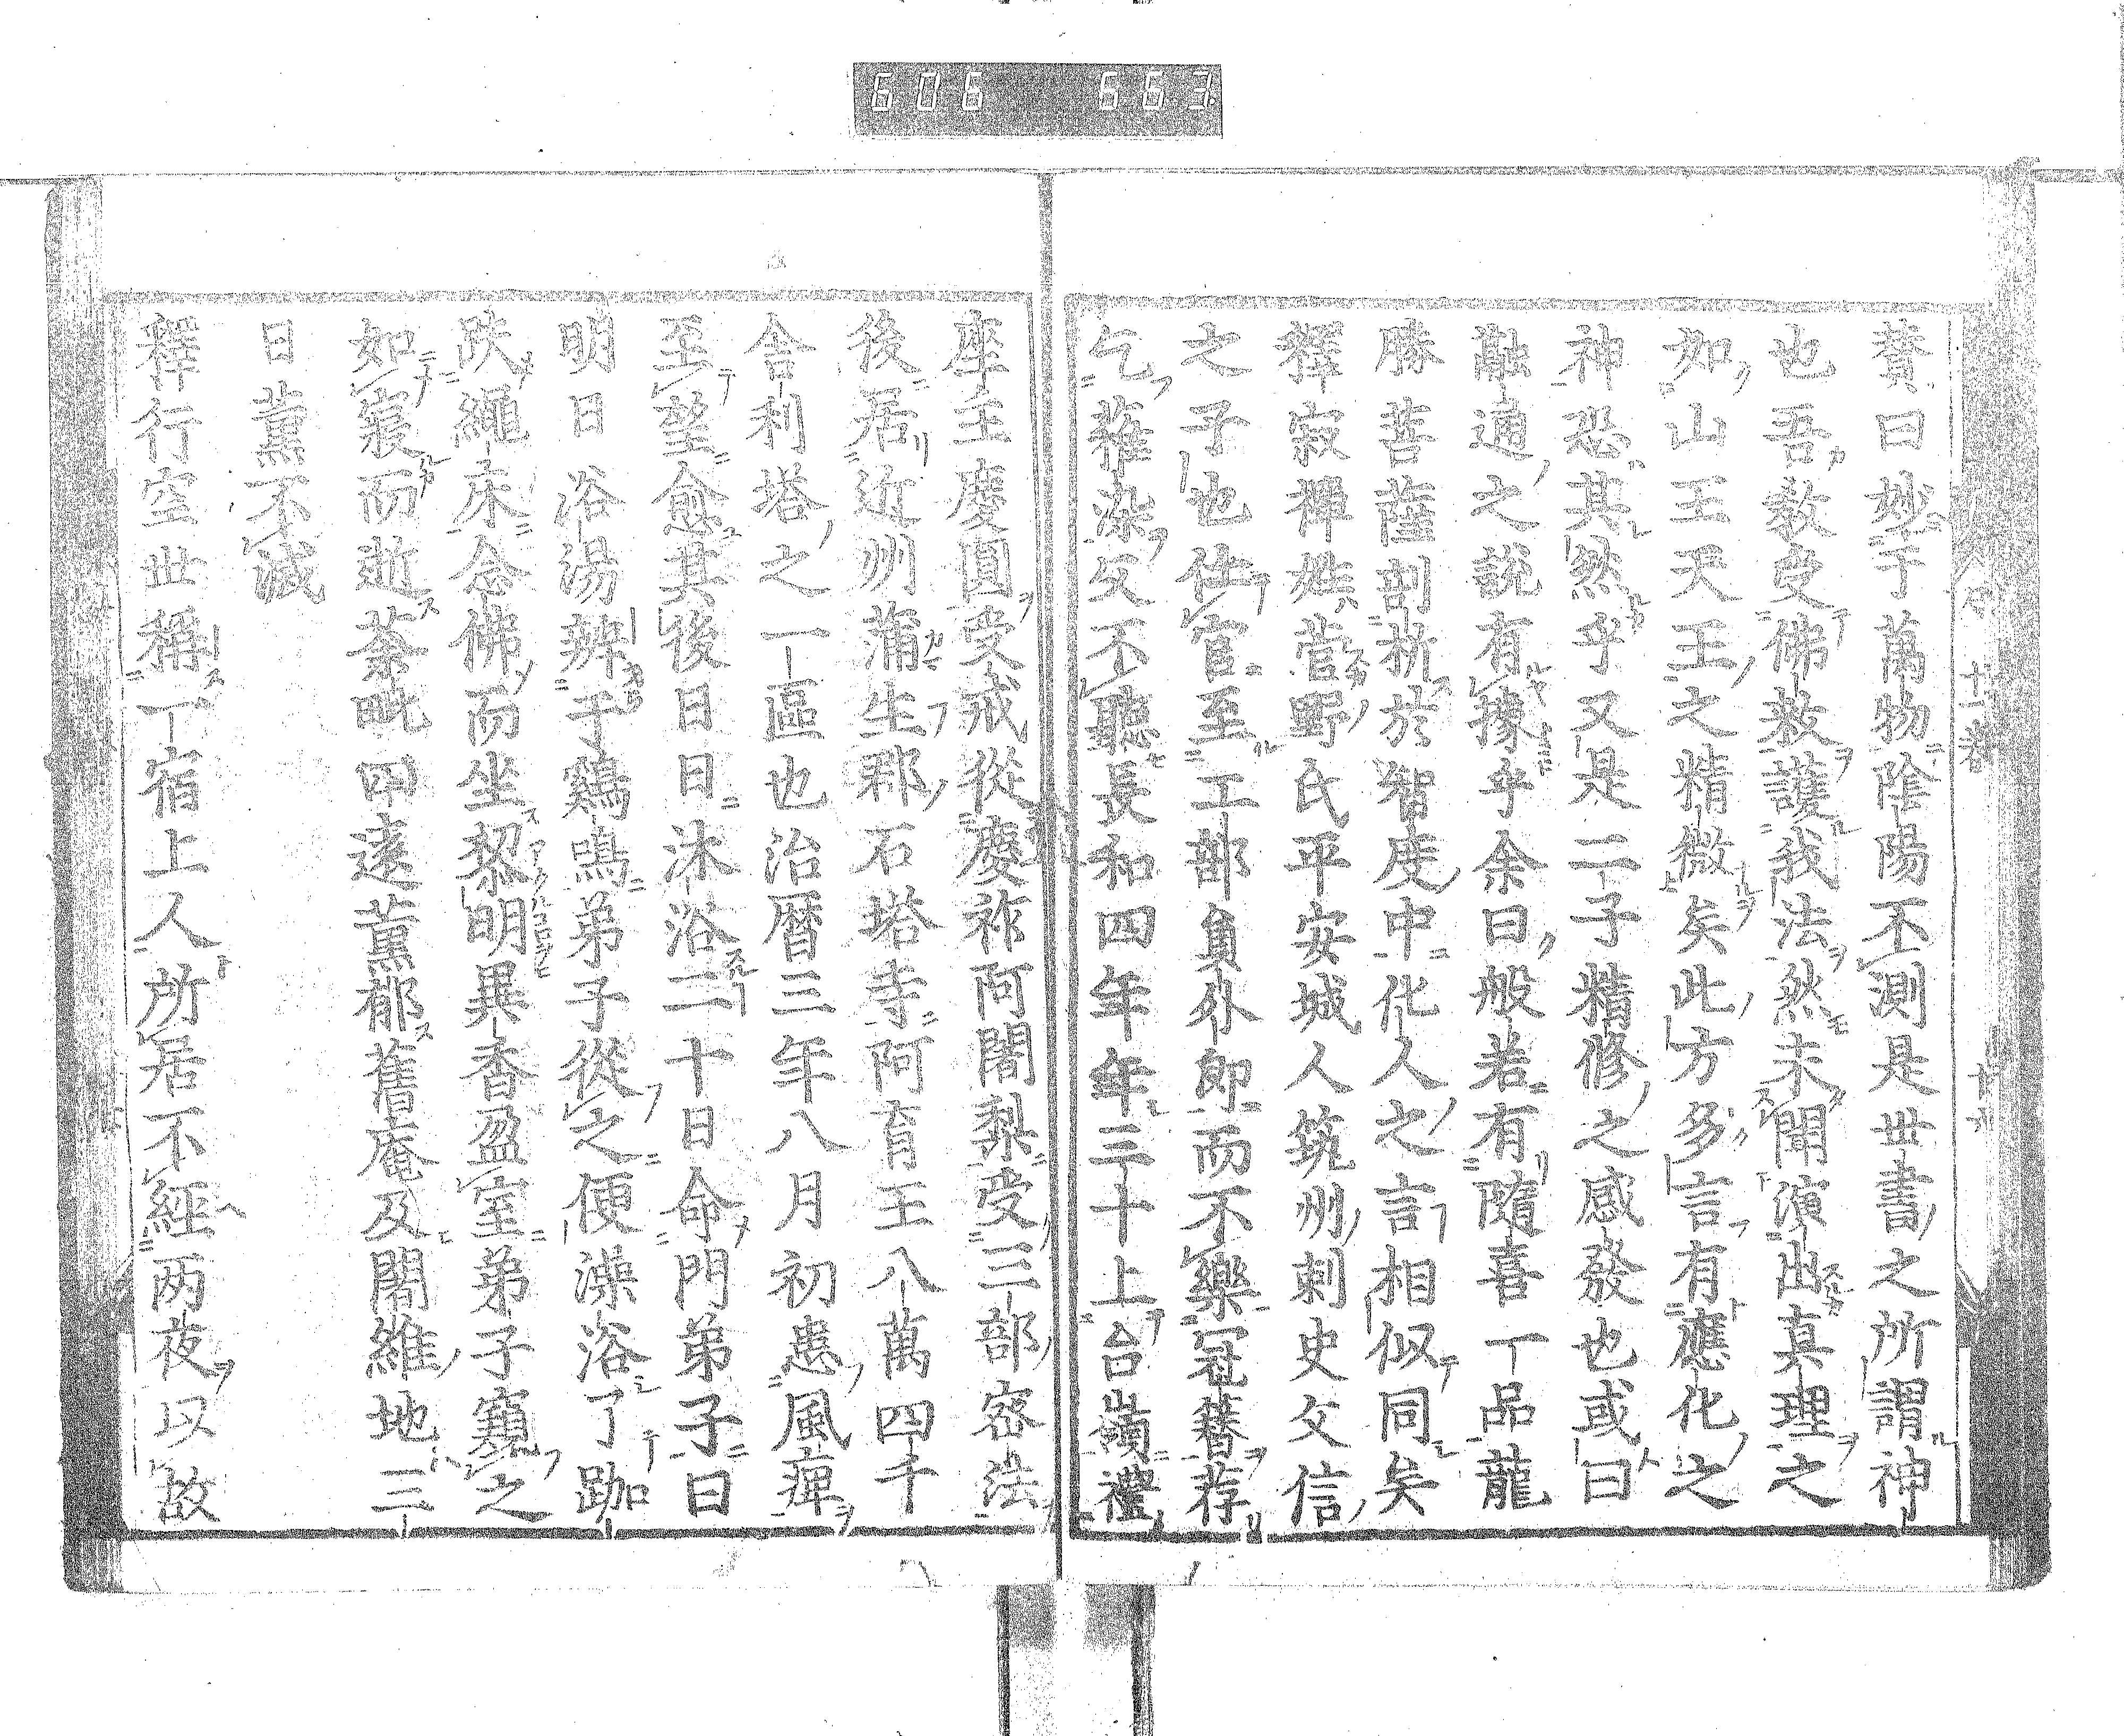 606 663
十一卷
十六
賛曰妙于萬物陰陽不測是世書之所謂神
也吾教受佛敎護我法然未聞演出真理之
如山王天王之精微矣此方多言有應化之
神恐其然乎又是二子精修之感發也或曰
融通之說有據乎余曰般若有隨喜一品龍
勝菩薩剖析於智度中化人之言相似同矣
釋寂禪姓菅野氏平安城人筑州刺史父信
之子也仕官至工部員外郎而不樂冠簪荐
乞薙染父不聽長和四年年三十上台嶺禮
座主慶圓受戒從慶祚阿闍梨受三部密法
後居近州蒲生郡石塔寺阿育王八萬四千
舍利塔之一區也治曆三年八月初患風痺
至望愈其後日日沐浴二十日命門弟子曰
明日浴湯辨于鷄鳴弟子從之便澡浴了跏
趺繩床念佛而坐黎明異香盈室弟子窺之
如寢而逝荼毗四遠薰郁舊庵及闍維地三
日薰不滅
釋行空世稱一宿上人所居不經兩夜以故